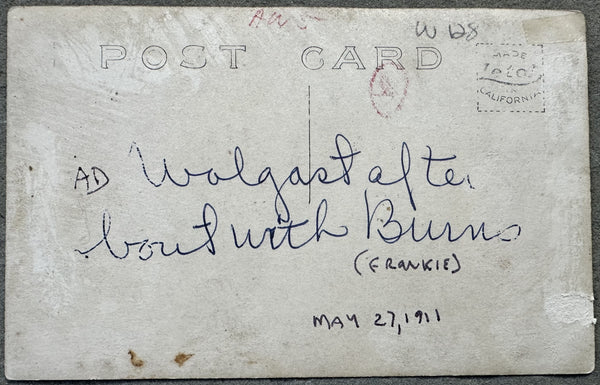 AW
W 128
POST CARD
MADE
IN
CALIFORNIA
AD Wolgast afte
bout with Burns
(FRANKIE)
MAY 27, 1911